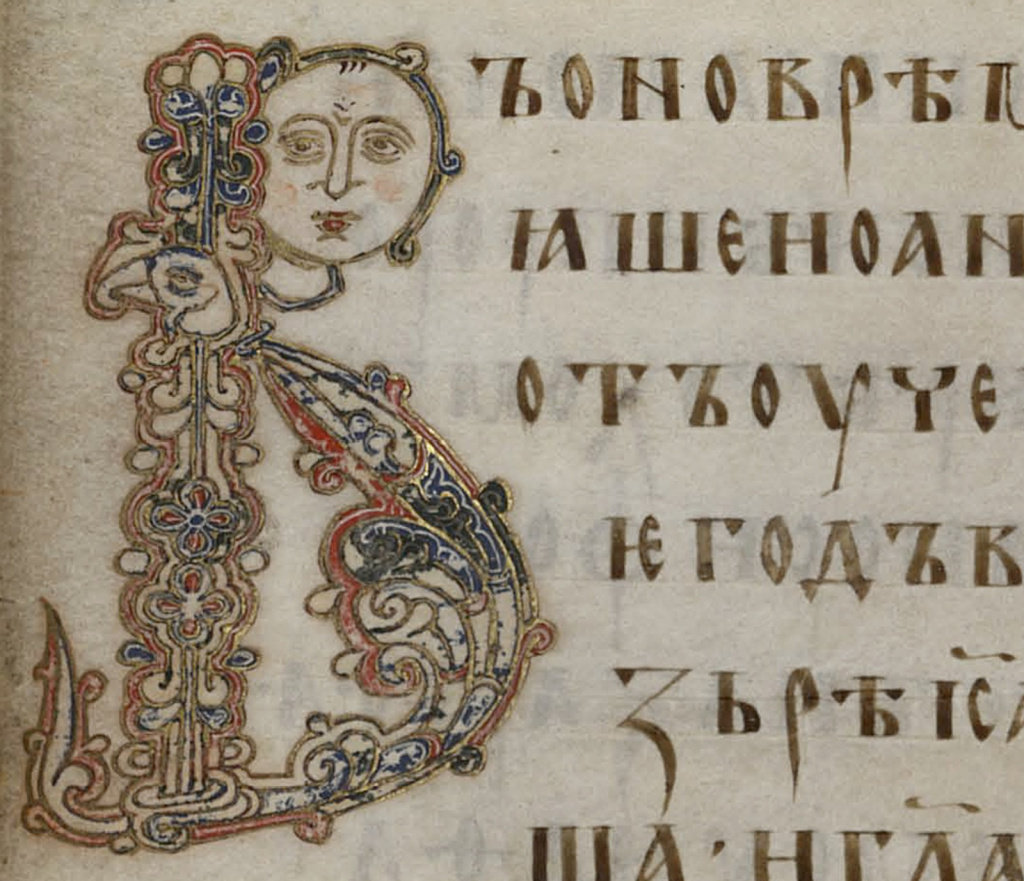 Въоноврѣм
ꙗшеноан
отъоуче
ѥгодъв
зьрѣіс҃
ша·нгл҃а